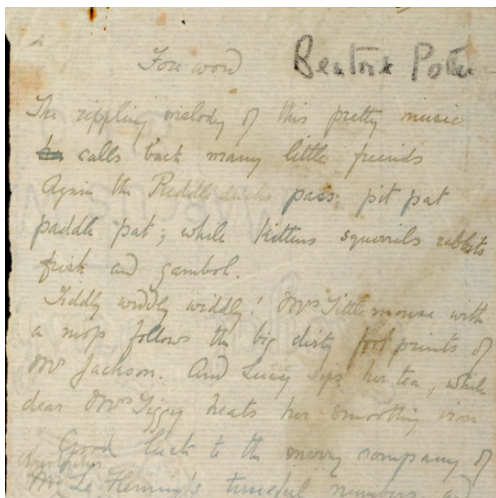 Foreword Beatrix Potter
The rippling melody of this pretty music
calls back many little friends
Again the Puddleducks pass; pit pat
paddle pat; while kittens squirrels rabbits
frisk and gambol.
Tiddly widdly widdly! Mrs Tittlemouse with
a mop follows the big dirty foot prints of
Mr Jackson. And Lucy sips her tea, while
dear Mrs Tiggy heats her smoothing iron
Good luck to the merry company of
Le Fleming's tuneful